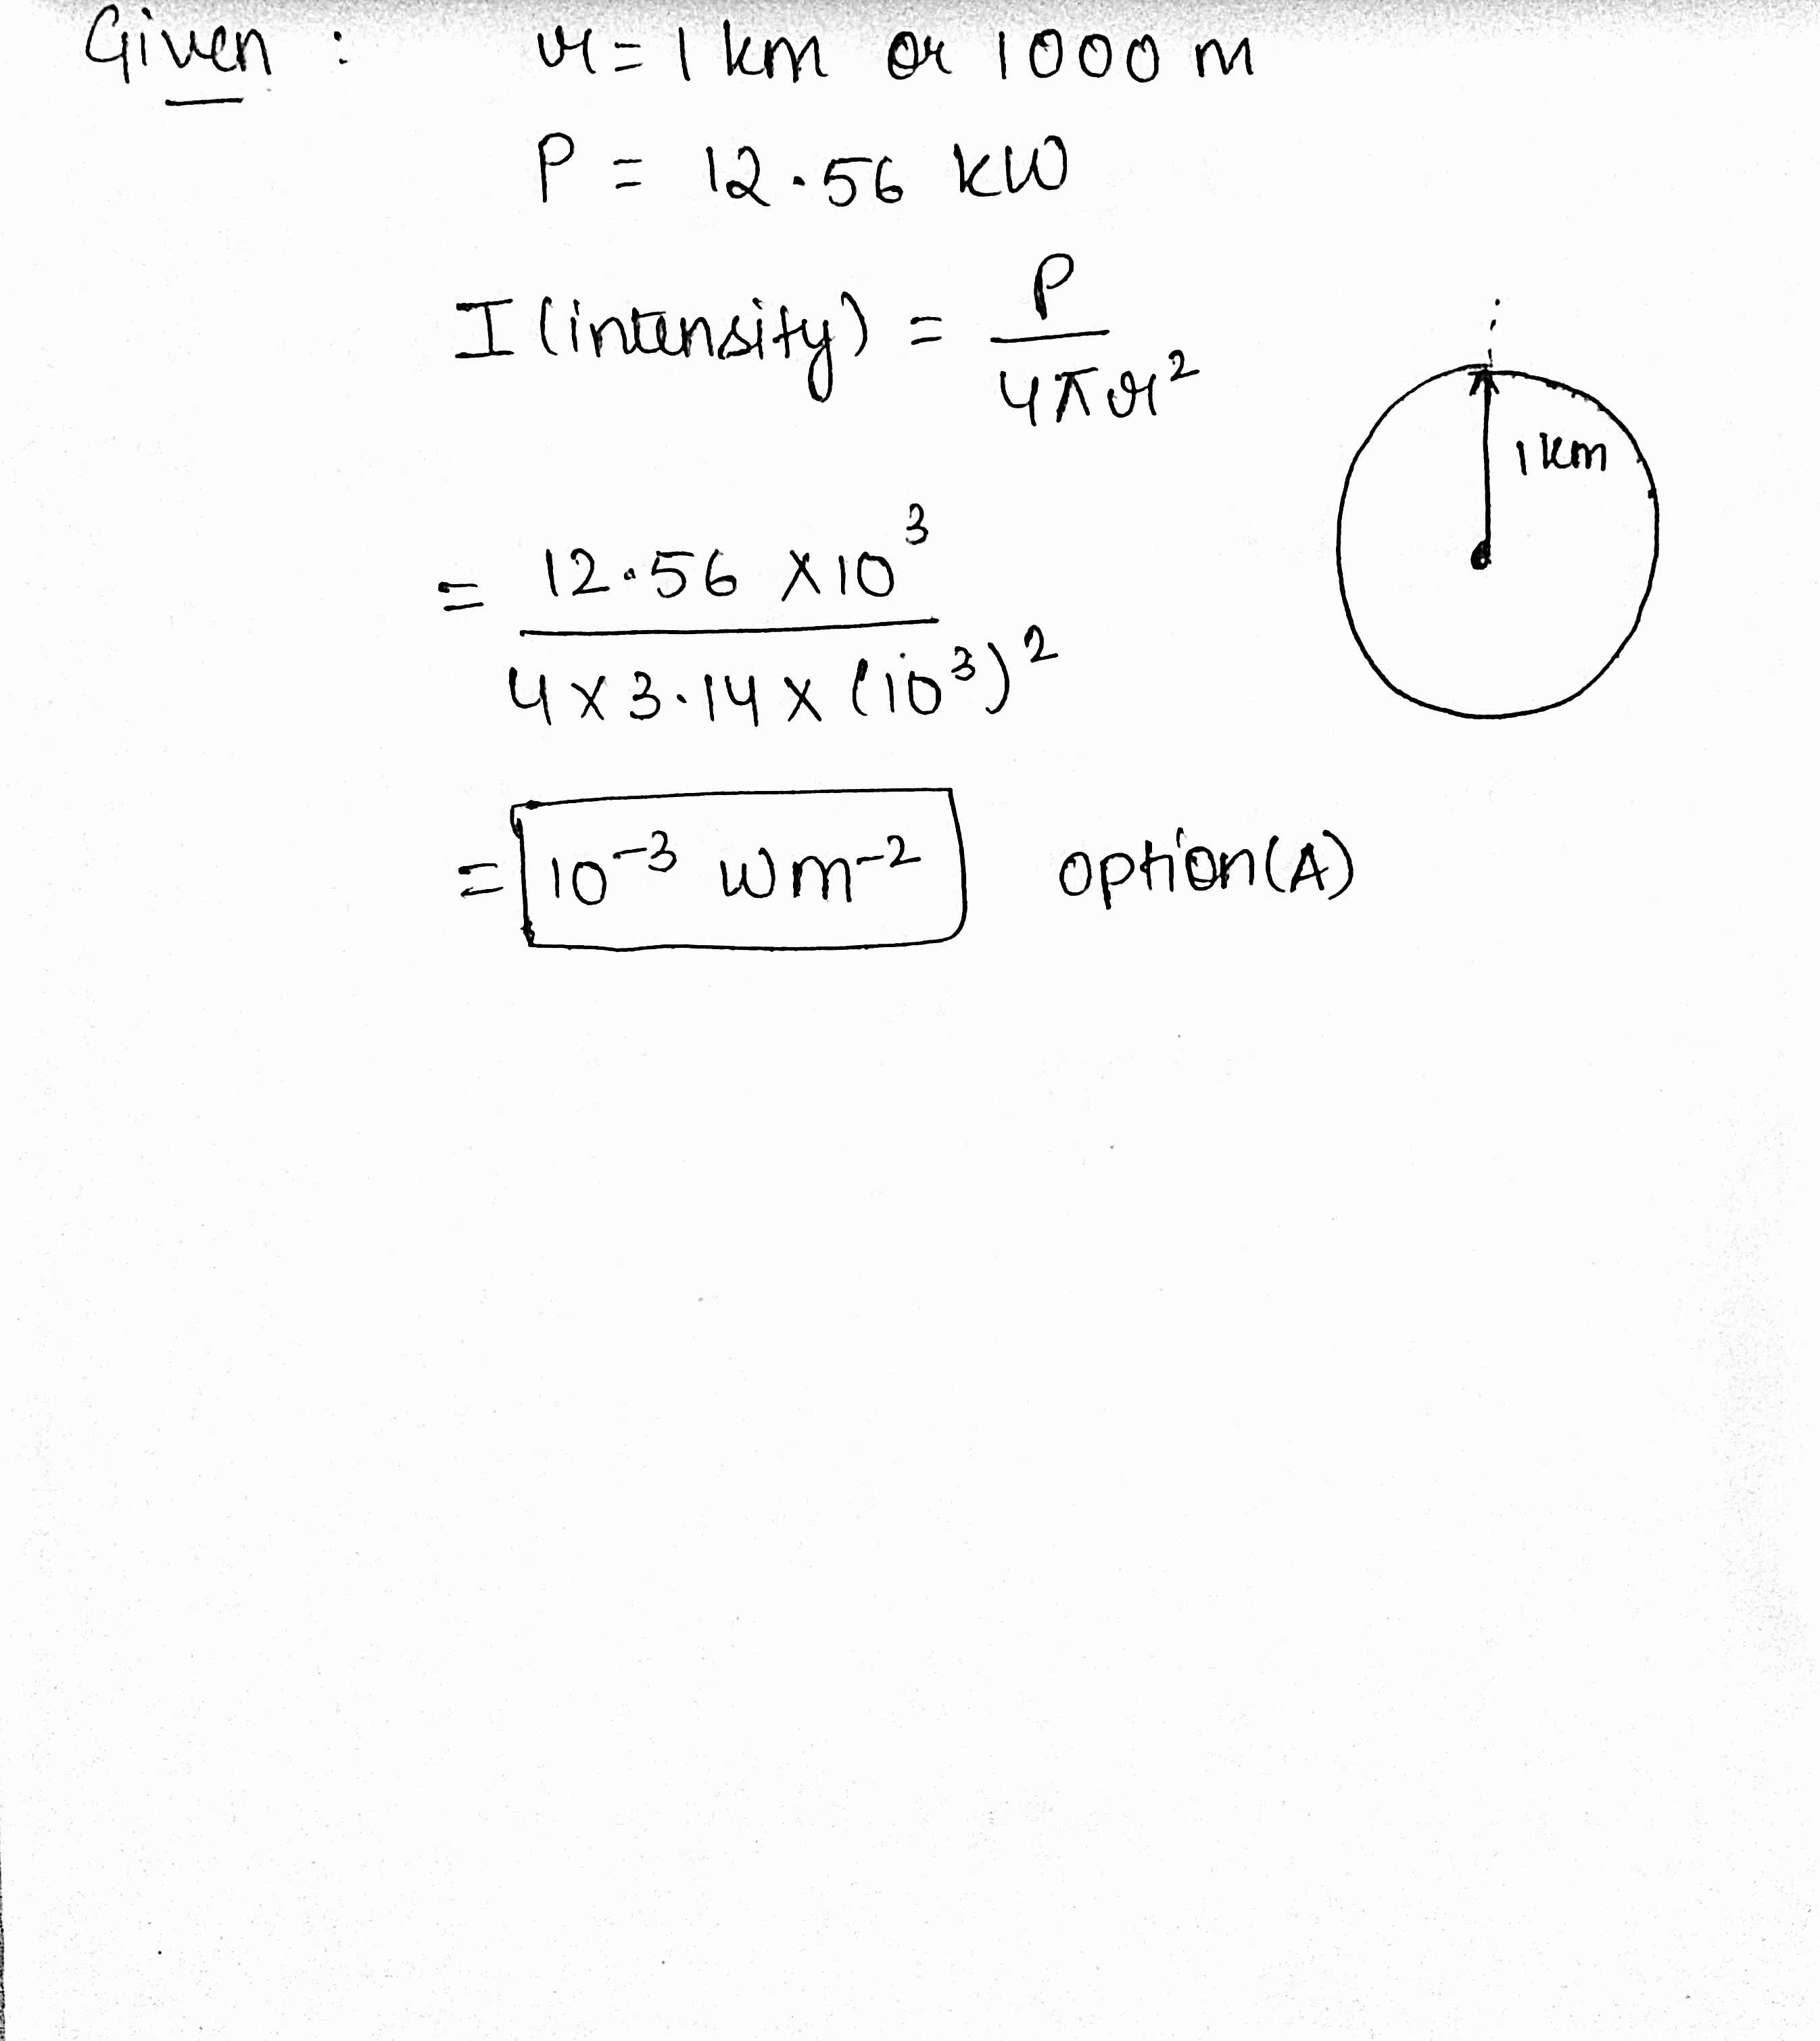 Given : r = 1 km or 1000 m
P = 12.56 kW
I (intensity) = P / 4πr²
1 km
= 12.56 × 10³ / 4 × 3.14 × (10³)²
= 10⁻³ Wm⁻² option (A)